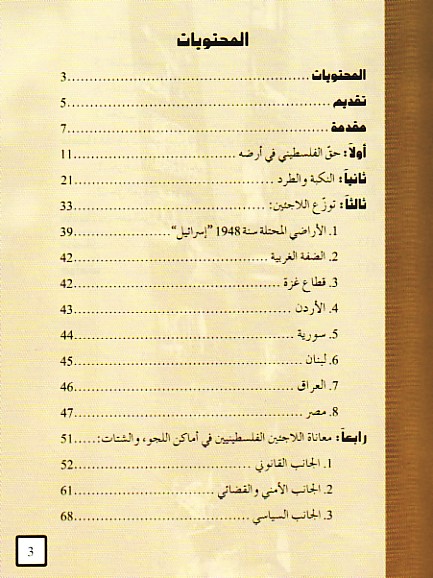 المحتويات
المحتويات ........................................ 3
تقديم ........................................ 5
مقدمة ........................................ 7
أولاً: حقّ الفلسطيني في أرضه ........................................ 11
ثانياً: النكبة والطرد ........................................ 21
ثالثاً: توزّع اللاجئين: ........................................ 33
1. الأراضي المحتلة سنة 1948 "إسرائيل" ........................................ 39
2. الضفة الغربية ........................................ 42
3. قطاع غزة ........................................ 42
4. الأردن ........................................ 43
5. سورية ........................................ 44
6. لبنان ........................................ 45
7. العراق ........................................ 46
8. مصر ........................................ 47
رابعاً: معاناة اللاجئين الفلسطينيين في أماكن اللجوء والشتات: ..... 51
1. الجانب القانوني ........................................ 52
2. الجانب الأمني والقضائي ........................................ 61
3. الجانب السياسي ........................................ 68
3